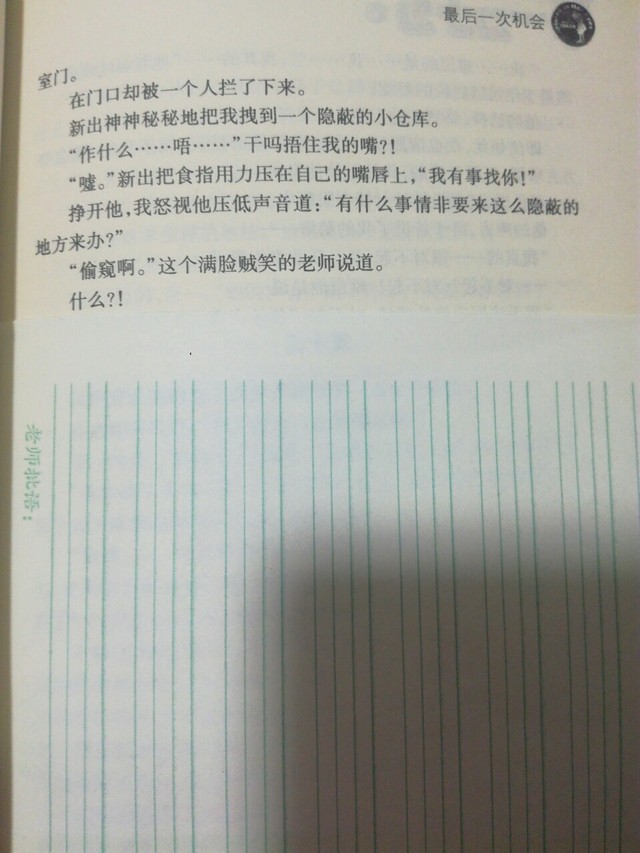 最后一次机会
室门。
在门口却被一个人拦了下来。
新出神神秘秘地把我拽到一个隐蔽的小仓库。
“作什么……唔……”干吗捂住我的嘴?!
“嘘。”新出把食指用力压在自己的嘴唇上，“我有事找你!”
挣开他，我怒视他压低声音道：“有什么事情非要来这么隐蔽的
地方来办?”
“偷窥啊。”这个满脸贼笑的老师说道。
什么?!
老师批语：